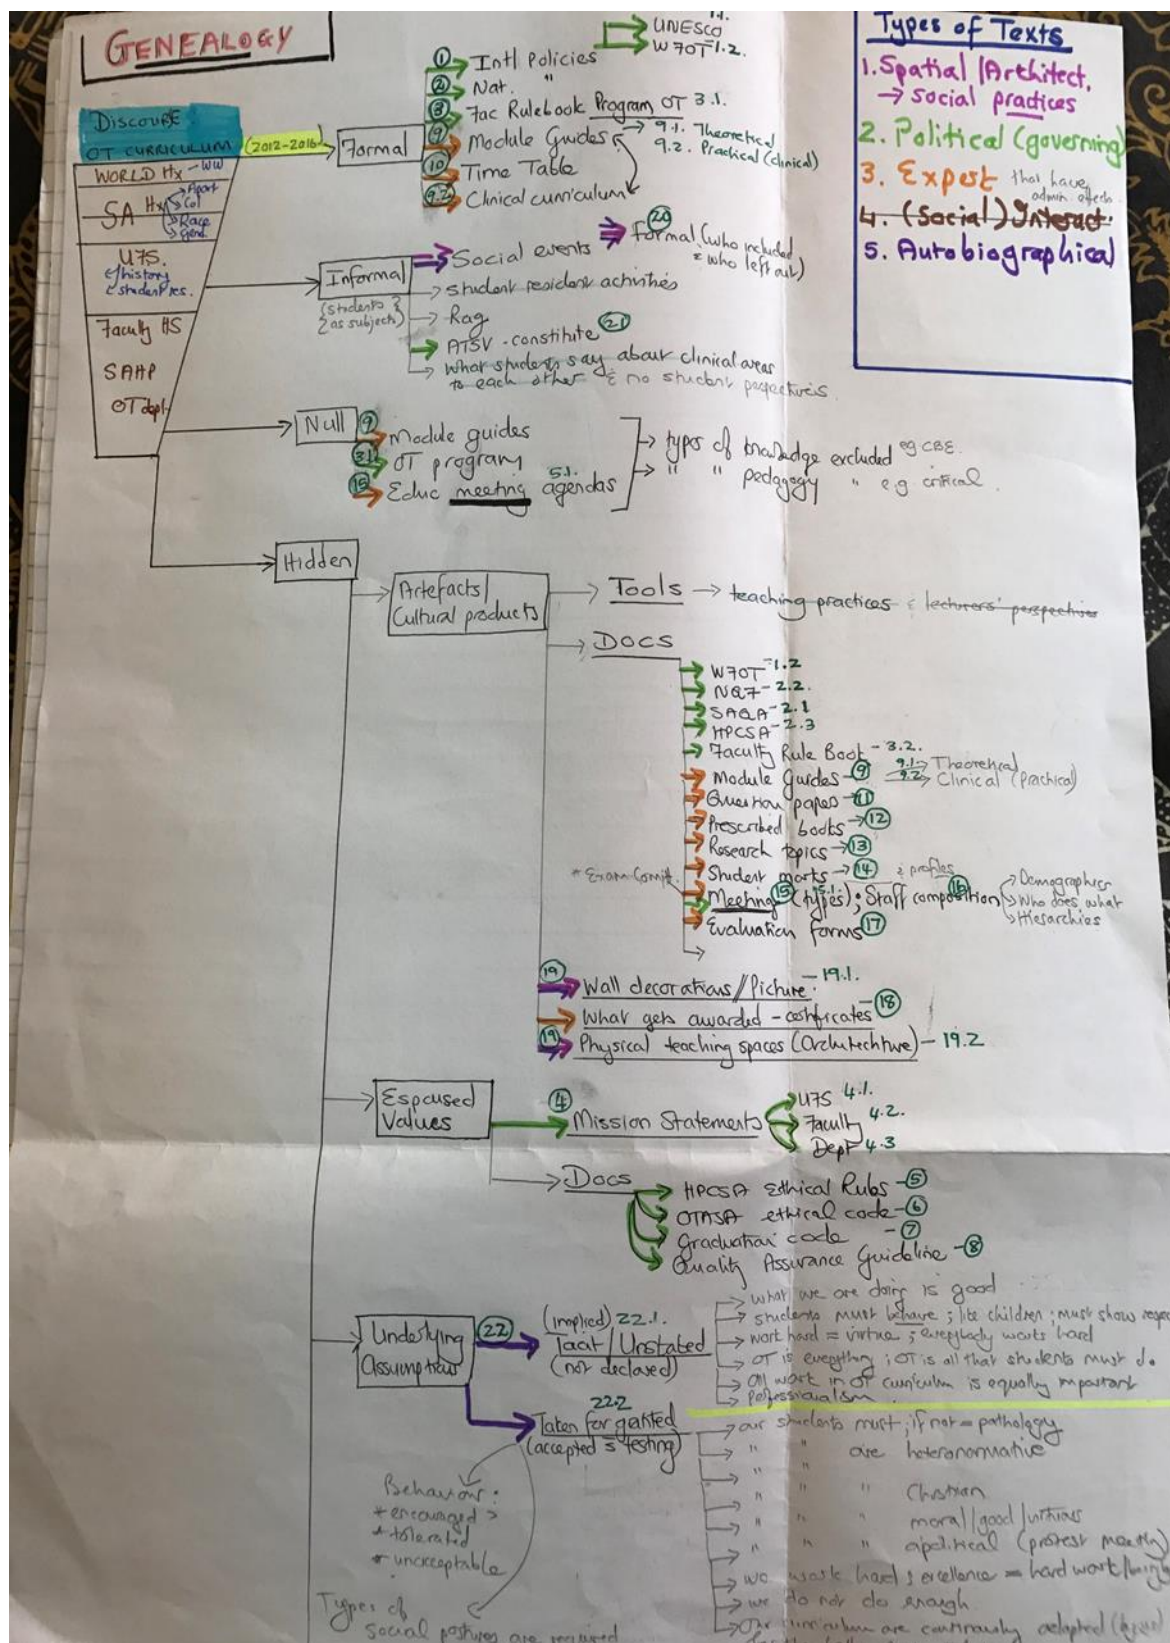 GENEALOGY
DISCOURSE
OT CURRICULUM (2012-2016)
WORLD Hx - WW
SA Hx
Apart
Col
Race
Gend.
UFS.
history
student res.
Faculty HS
SAHP
OT dept
Formal
1 Intl Policies
UNESCO 1.1.
WFOT 1.2.
2 Nat. "
3 Fac RuleBook Program OT 3.1.
9 Module Guides → 9.1. Theoretical
9.2. Practical (clinical)
10 Time Table
9.2 Clinical curriculum
Informal
{students }
{as subjects}
Social events → formal (who included
20
& who left out)
student resident activities
Rag
ATSV - constitute 21
What students say about clinical areas
to each other & no student perspectives
Null
9 Module guides
3.1 OT program
15 Educ meeting agendas 5.1.
types of knowledge excluded eg CBE.
" " pedagogy " e.g critical.
Hidden
Artefacts/
Cultural products
Tools → teaching practices & lecturers' perspectives
Docs
WFOT - 1.2
NQF - 2.2.
SAQA - 2.1
HPCSA - 2.3
Faculty Rule Book - 3.2.
Module Guides - 9 9.1 → Theoretical
9.2 → Clinical (Practical)
Question papes → 11
Prescribed books → 12
Research topics → 13
* Exam Comit. Student marks → 14 & profiles
Meeting 15 (types) 15.1; Staff composition 16
Demographics
Who does what
Hierarchies
Evaluation forms 17
19 Wall decorations//Picture - 19.1.
What gets awarded - certificates 18
19 Physical teaching spaces (Architechture) - 19.2
Espoused
Values
4 Mission Statements
UFS 4.1.
Faculty 4.2.
Dept 4.3
Docs
HPCSA Ethical Rules - 5
OTASA ethical code - 6
Graduation code - 7
Quality Assurance Guideline - 8
Underlying
Assumptions
22
(implied) 22.1.
Tacit/Unstated
(not declared)
what we are doing is good
students must behave; like children; must show
work hard = virtue; everybody works hard
OT is everything; OT is all that students must do.
All work in OT curriculum is equally important
Professionalism
22.2
Taken for granted
(accepted s testing)
our students must; if not = pathology
" " are heteronormative
" " " Christian
" " moral/good/virtuous
" " apolitical (protest
we work hard; excellence = hard work/
we do not do enough.
Our curriculum are continuously adapted
Behaviour:
* encouraged >
* tolerated
* unacceptable
Types of
social postures are required
Types of Texts
1. Spatial/Architect.
→ social practices
2. Political (governing)
3. Expert that have
admin effects.
4. (Social) Interact.
5. Autobiographical